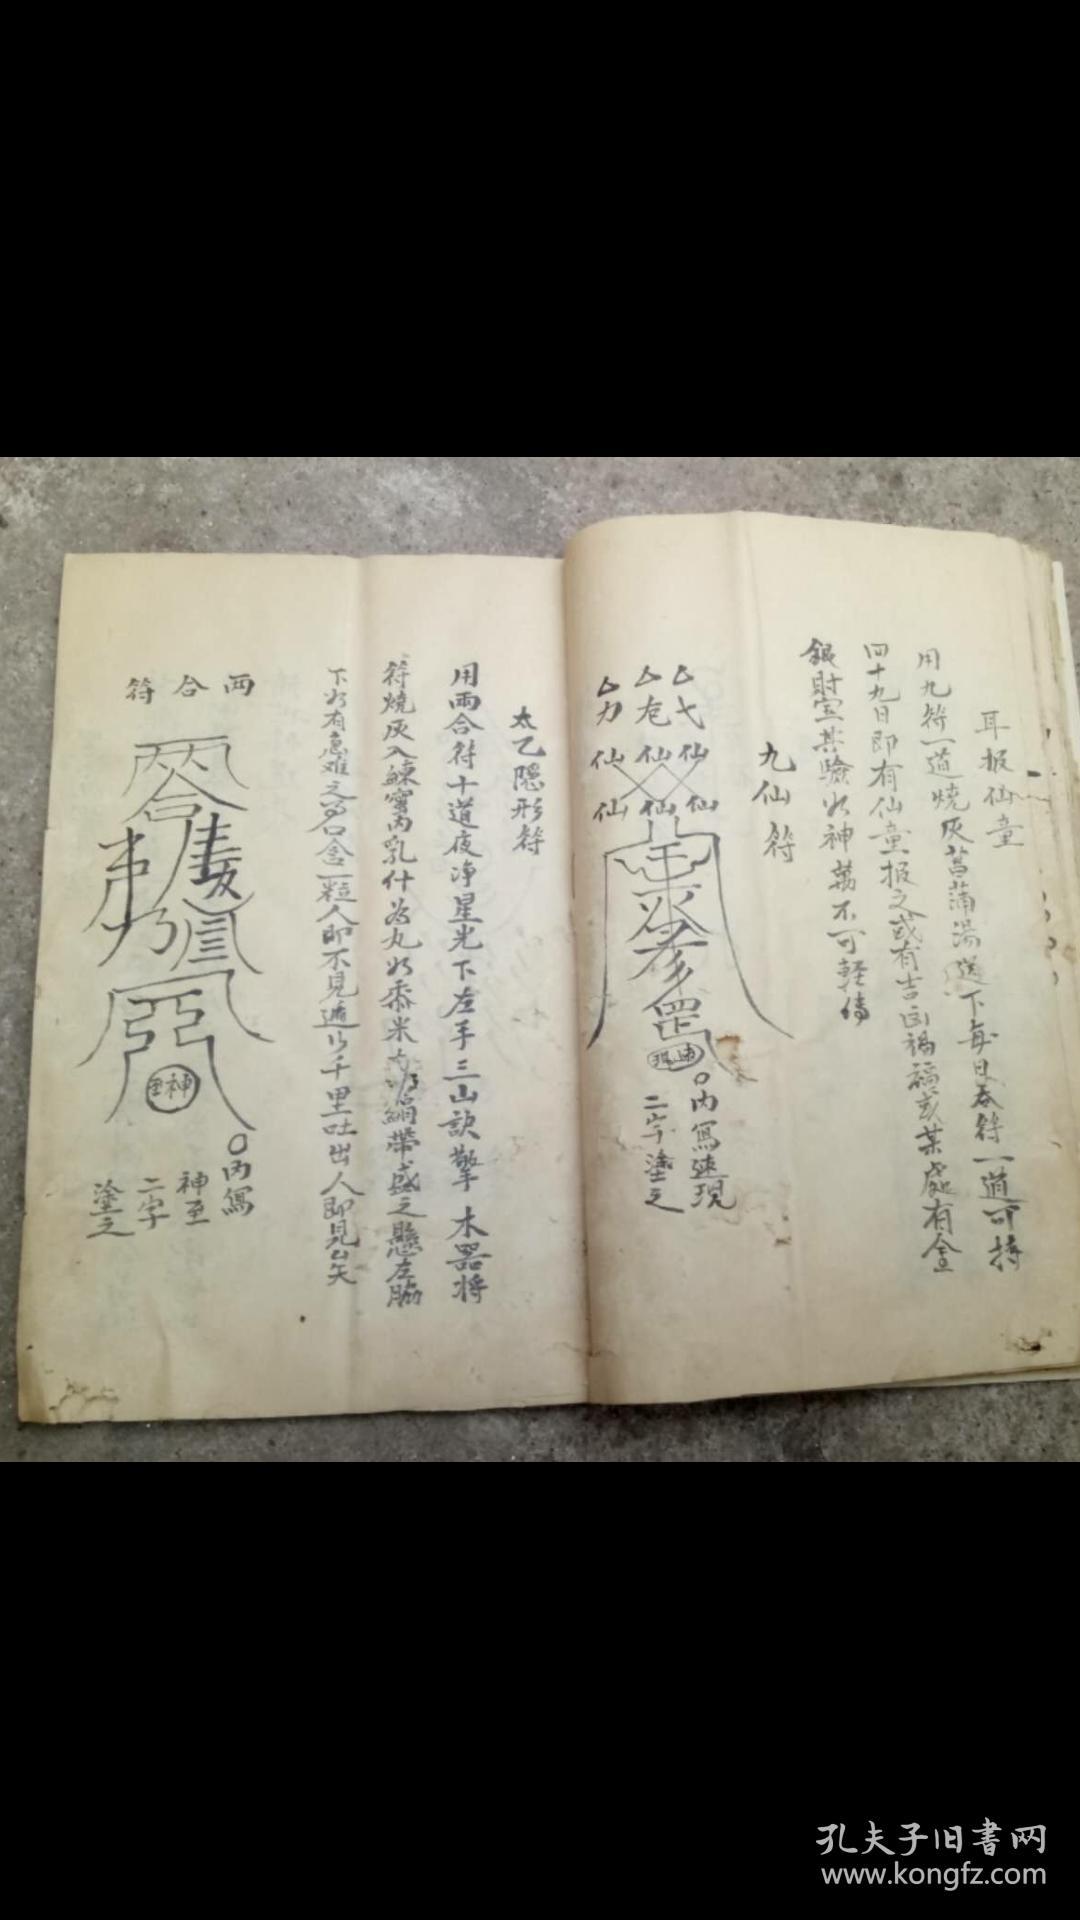 耳报仙童
用九符一道燒灰菖蒲湯送下每日吞符一道可持
四十九日即有仙童报之或有吉凶禍福或某處有金
銀財宝其驗如神萬不可輕傳
九仙符
厶弋仙仙
厶龙仙仙
厶力仙仙
〇内寫速現
二字塗之
太乙隱形符
用兩合符十道夜净星光下左手三山訣擎木器将
符燒灰入丙乳什为丸如黍米帶盛之懸左脇
下如有急难之口含一粒人即不見遁以千里吐出人即見矣
両合符
神至
〇内寫
神至
二字
塗之
孔夫子旧書网
www.kongfz.com